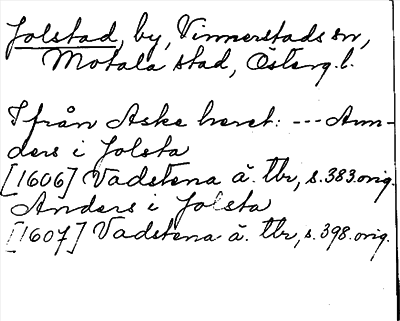 Jolstad, by, Vinnerstads sn,
Motala stad, Österg. l.
I från Aske heret: --- Ann-
ders i Jolsta
[1606] Vadstena ä. tbr, s. 383. orig.
Anders i Jolsta
[1607] Vadstena ä. tbr, s. 398. orig.